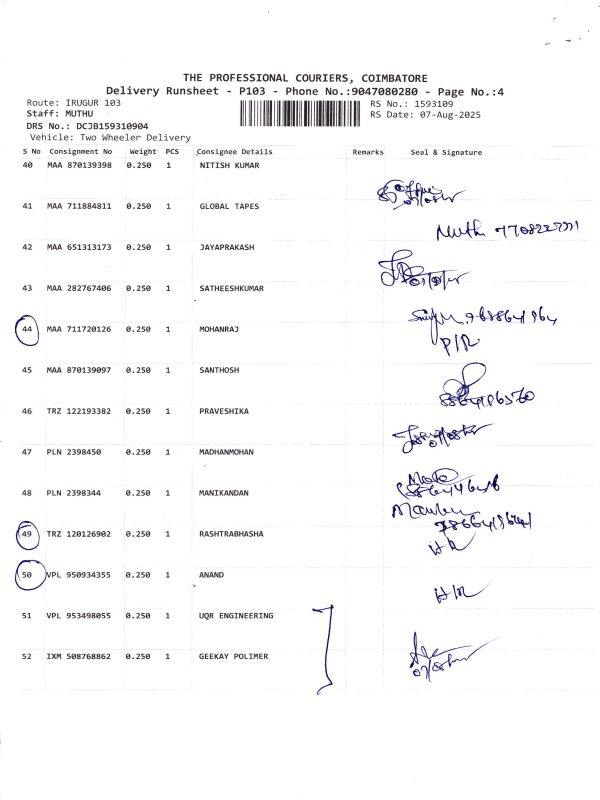 THE PROFESSIONAL COURIERS, COIMBATORE
Delivery Runsheet - P103 - Phone No.:9047080280 - Page No.:4
Route: IRUGUR 103 RS No.: 1593109
Staff: MUTHU RS Date: 07-Aug-2025
DRS No.: DCJB159310904
Vehicle: Two Wheeler Delivery
S No Consignment No Weight PCS Consignee Details Remarks Seal & Signature
40 MAA 870139398 0.250 1 NITISH KUMAR
41 MAA 711884811 0.250 1 GLOBAL TAPES
42 MAA 651313173 0.250 1 JAYAPRAKASH
43 MAA 282767406 0.250 1 SATHEESHKUMAR
44 MAA 711720126 1 0.250 MOHANRAJ
P/R
45 MAA 870139097 0.250 1 SANTHOSH
46 TRZ 122193382 0.250 1 PRAVESHIKA
47 PLN 2398450 0.250 1 MADHANMOHAN
48 PLN 2398344 0.250 1 MANIKANDAN
49 TRZ 120126902 0.250 1 RASHTRABHASHA
50 VPL 950934355 0.250 1 ANAND
51 VPL 953498055 0.250 1 UQR ENGINEERING
52 IXM 508768862 0.250 1 GEEKAY POLIMER